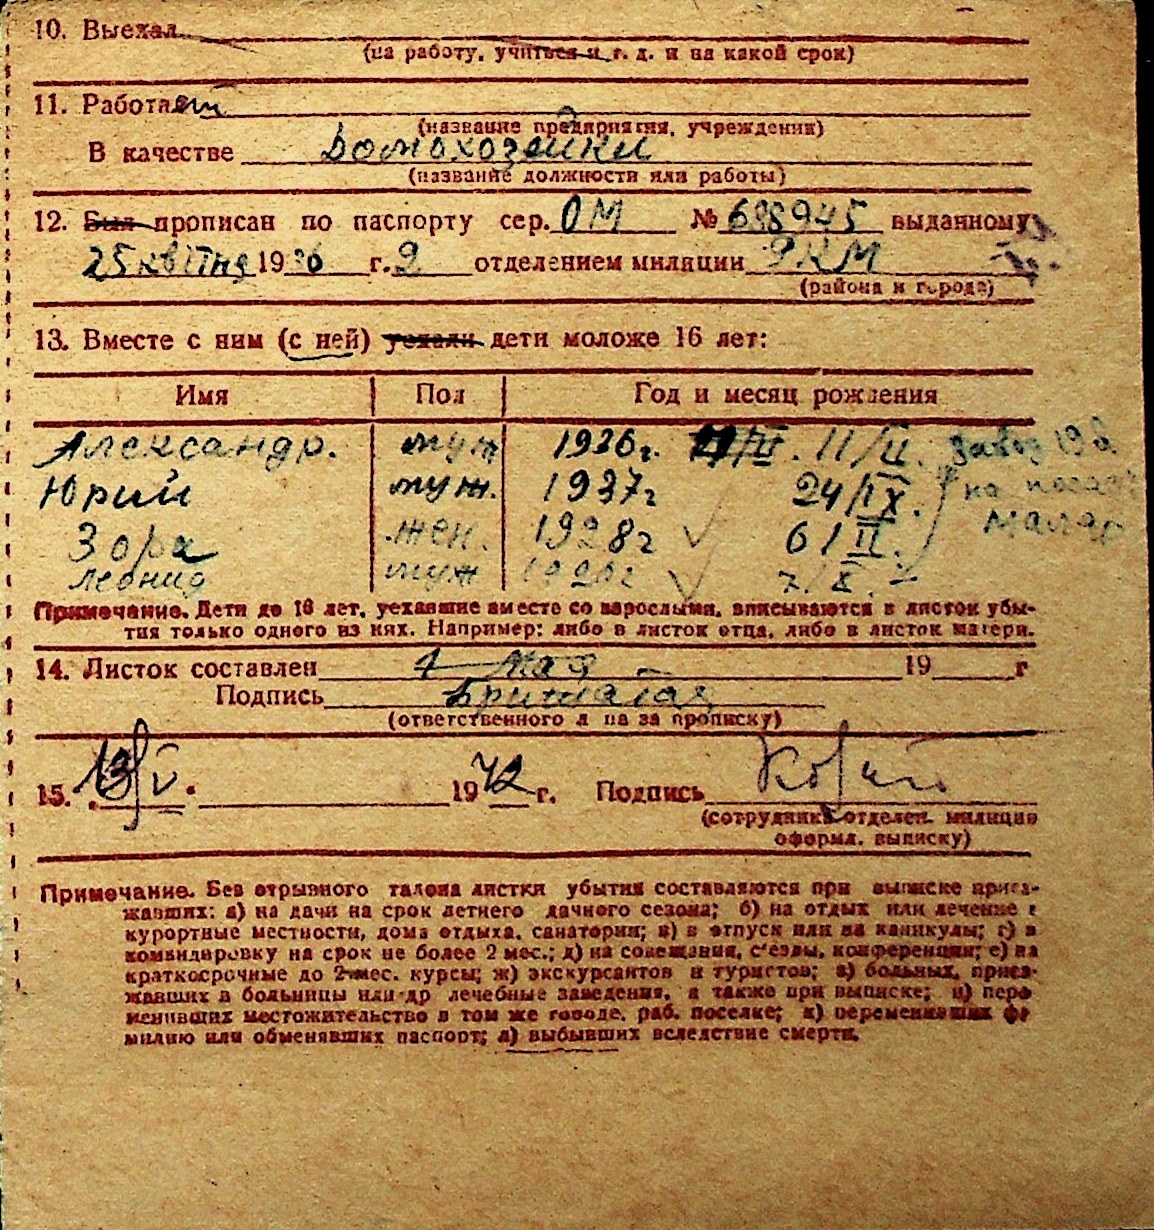 10. Выехал
(на работу, учиться и т. д. и на какой срок)
11. Работает
(название предприятия, учреждения)
В качестве Домохозяйки
(название должности или работы)
12. Был прописан по паспорту сер. ОМ № 698945 выданному
25 квітня 1936 г. 2 отделением милиции РКМ
(района и города)
13. Вместе с ним (с ней) уехали дети моложе 16 лет:
Имя Пол Год и месяц рождения
Александр. муж 1926г. 11/II. Завод 19
Юрий муж. 1937г 24/IX. на
Зора жен. 1928г 6/II.
Леонид муж 7/X.
Примечание. Дети до 16 лет, уехавшие вместе со взрослыми, вписываются в листок убы-
тия только одного из них. Например: либо в листок отца, либо в листок матери.
14. Листок составлен 1 мая 19 г
Подпись
(ответственного лица за прописку)
15. 13/V. 1942 г. Подпись
(сотрудника отделен. милиции
оформл. выписку)
Примечание. Без отрывного талона листки убытия составляются при выписке приез-
жавших: а) на дачи на срок летнего дачного сезона; б) на отдых или лечение в
курортные местности, дома отдыха, санатории; в) в отпуск или на каникулы; г) в
командировку на срок не более 2 мес.; д) на совещания, съезды, конференции; е) на
краткосрочные до 2 мес. курсы; ж) экскурсантов и туристов; з) больных, приез-
жавших в больницы или др лечебные заведения, а также при выписке; и) пере
менивших местожительство в том же городе, раб. поселке; к) переменивших фа
милию или обменявших паспорт; л) выбывших вследствие смерти.